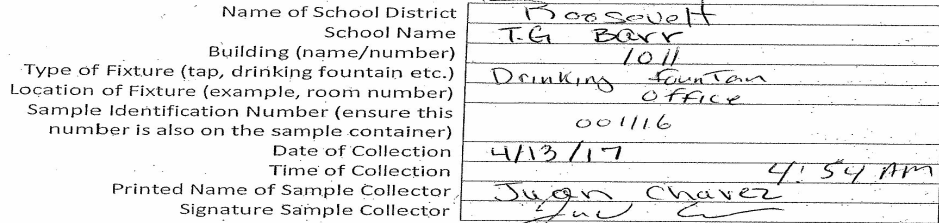 Name of School District Roosevelt
School Name T.G Barr
Building (name/number) 1011
Type of Fixture (tap, drinking fountain etc.) Drinking fountan
Location of Fixture (example, room number) office
Sample Identification Number (ensure this
number is also on the sample container) 001116
Date of Collection 4/13/17
Time of Collection 4:54 AM
Printed Name of Sample Collector Juan Chavez
Signature Sample Collector